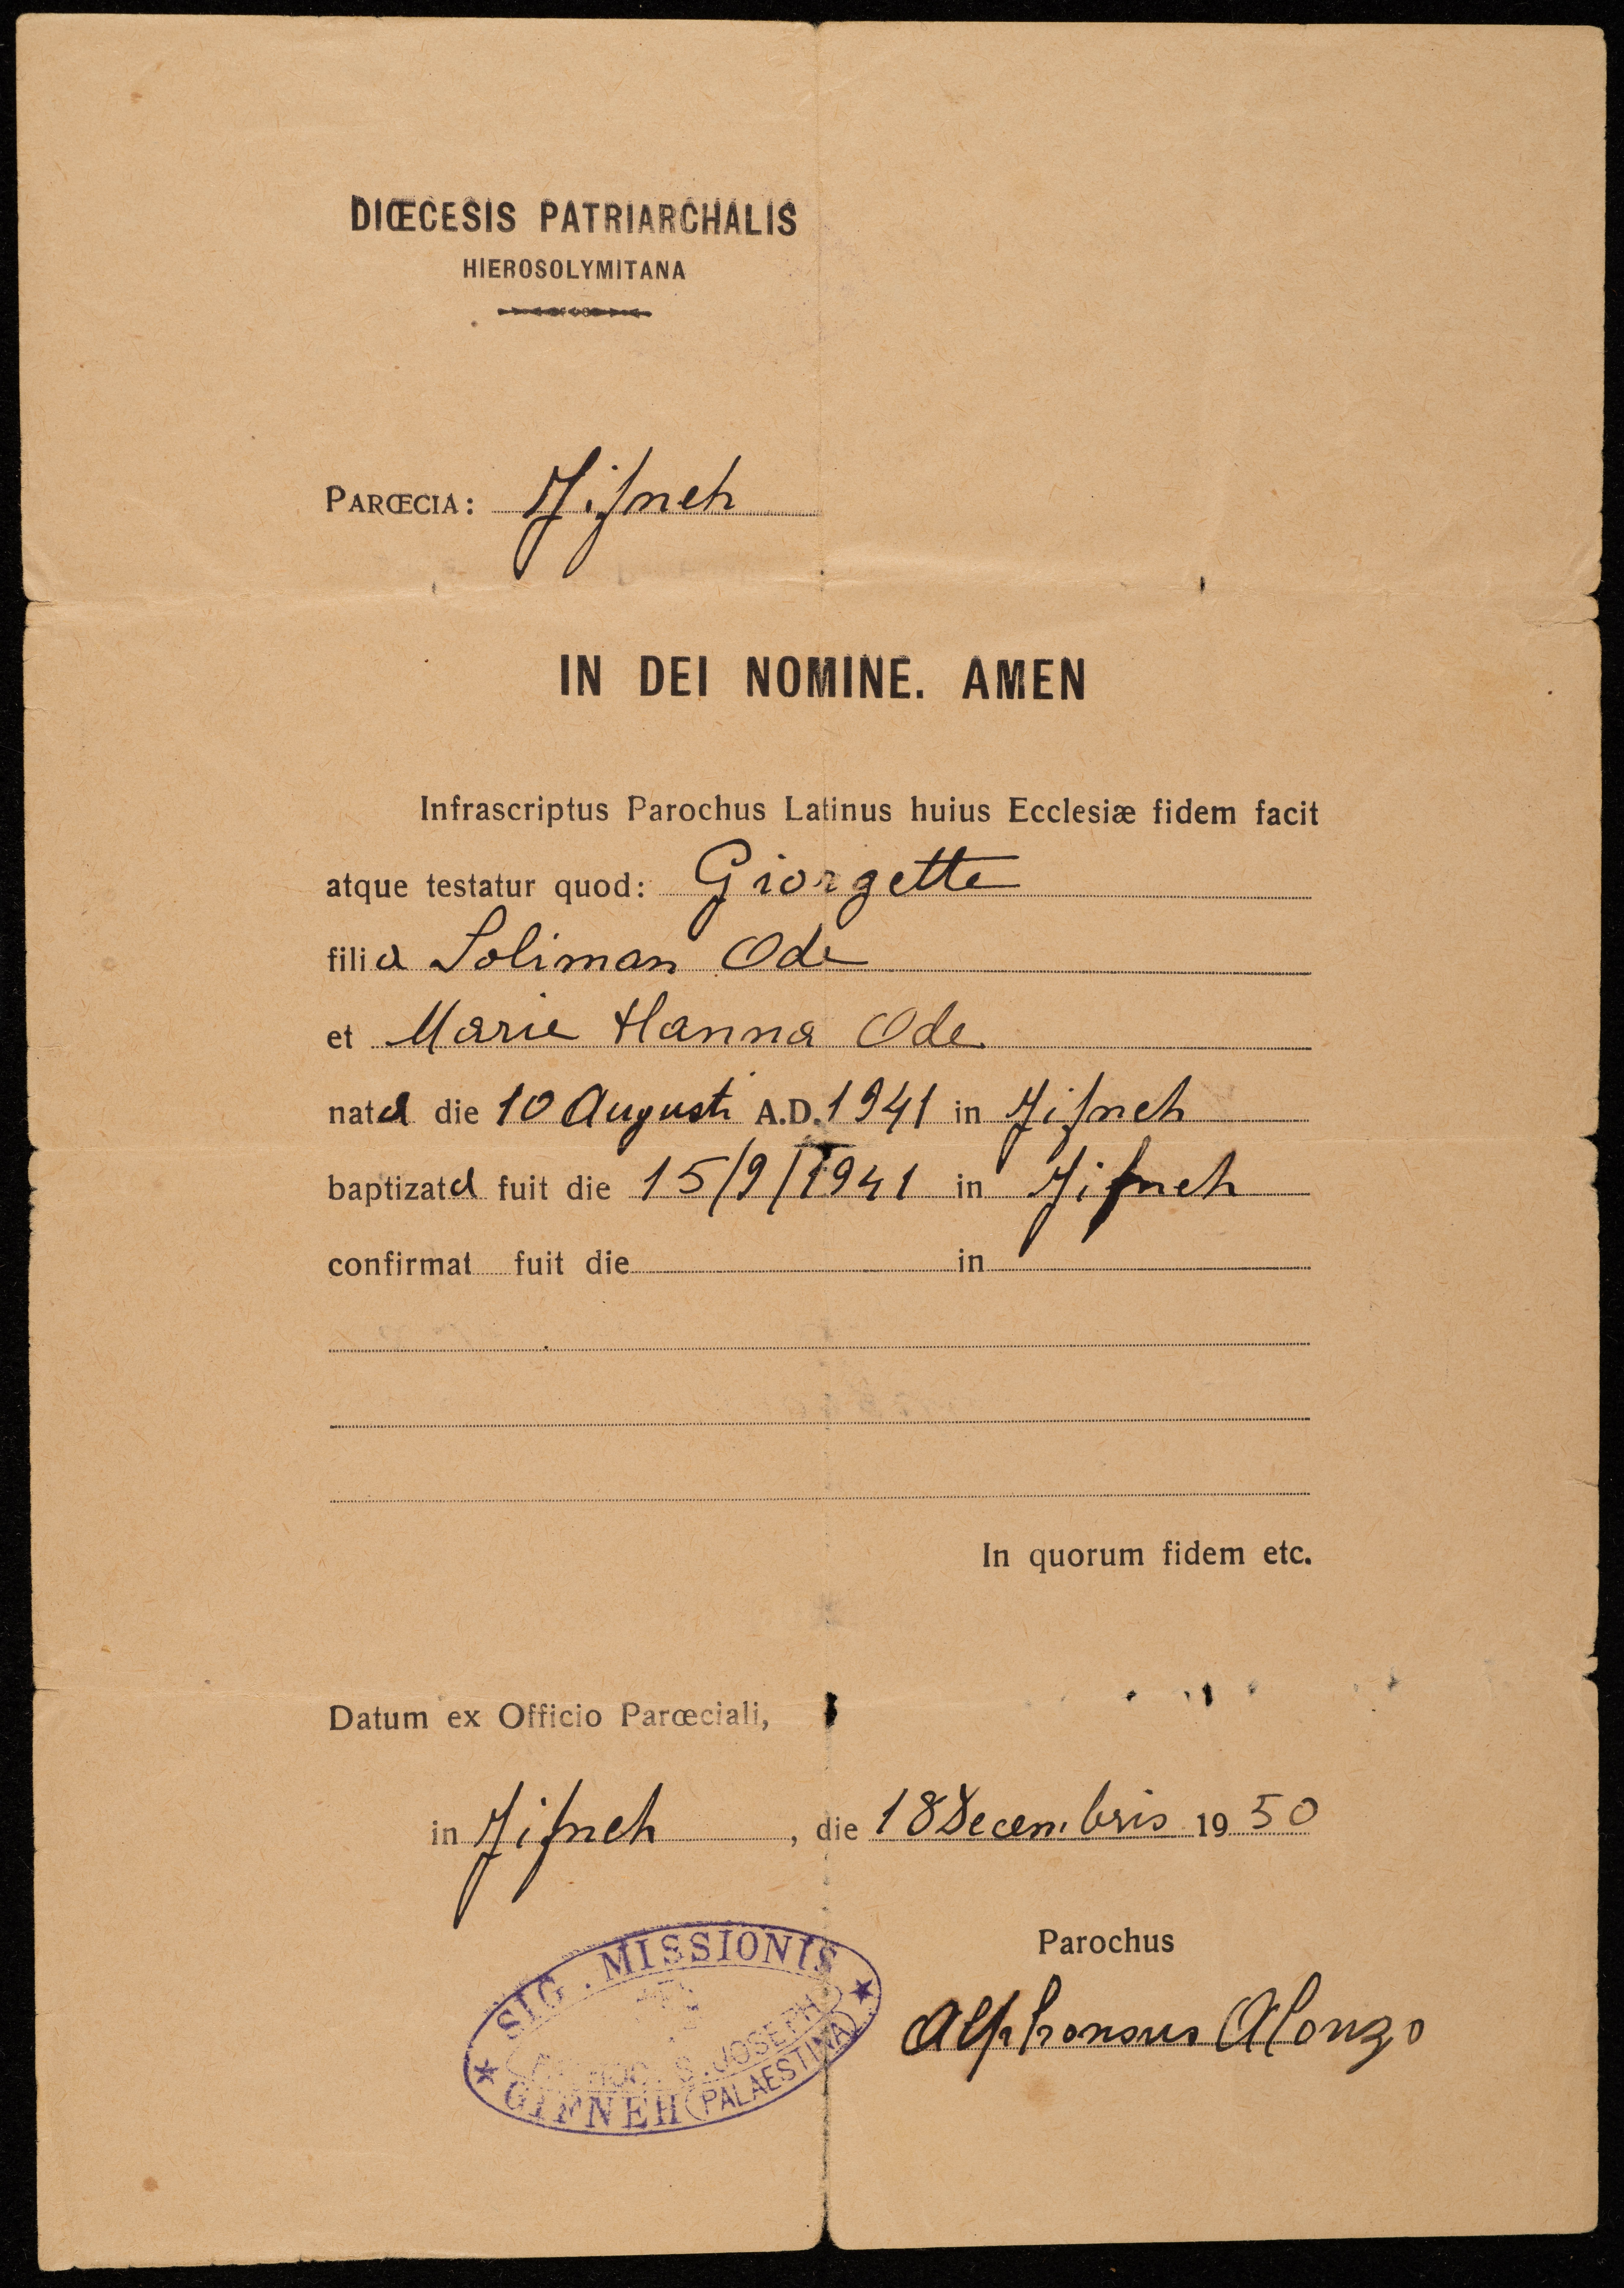 DIŒCESIS PATRIARCHALIS
HIEROSOLYMITANA
PARŒCIA: Jifneh
IN DEI NOMINE. AMEN
Infrascriptus Parochus Latinus huius Ecclesiæ fidem facit
atque testatur quod: Giorgette
filia Soliman Ode
et Marie Hanna Ode
nata die 10 Augusti A.D. 1941 in Jifneh
baptizata fuit die 15/9/1941 in Jifneh
confirmat fuit die in
In quorum fidem etc.
Datum ex Officio Parœciali,
in Jifneh, die 18 Decembris 1950
Parochus
Alphonsus Alonzo
SIG. MISSIONIS
S. JOSEPH
GIFNEH (PALAESTINA)